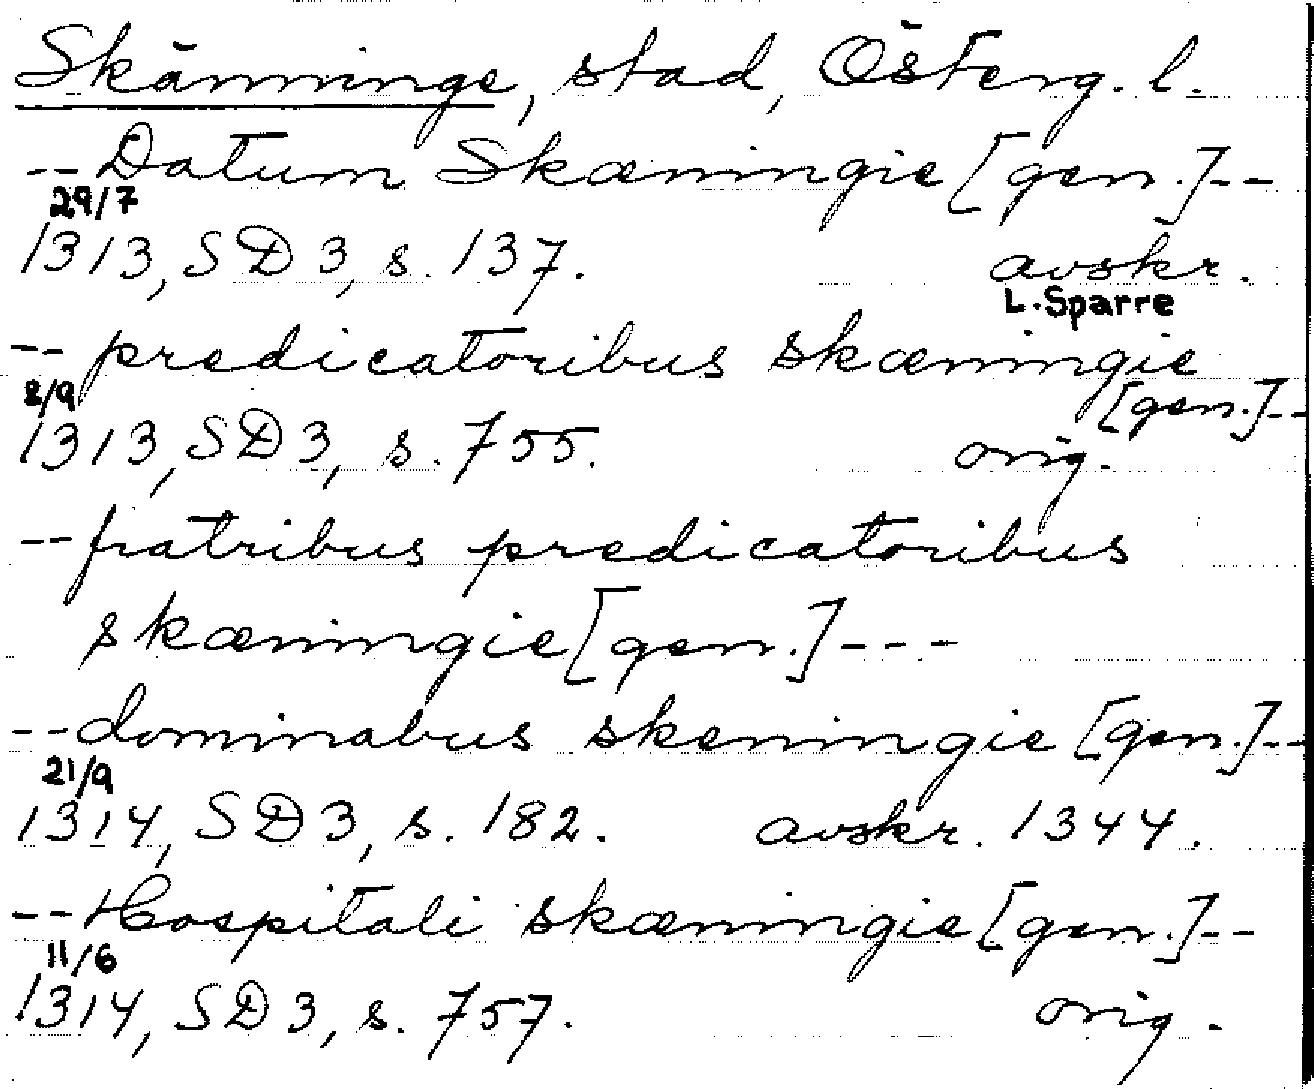 Skänninge, stad, Österg. l.
-- Datum Skæningie [gen.] --
29/7
1313, SD 3, s. 137. avskr.
L. Sparre
-- predicatoribus skæningie
8/9 [gen.] --
1313, SD 3, s. 755. orig.
-- fratribus predicatoribus
skæningie [gen.] ---
-- dominabus skeningie [gen.] --
21/9
1314, SD 3, s. 182. avskr. 1344.
-- Hospitali skæningie [gen.] --
11/6
1314, SD 3, s. 757. orig.